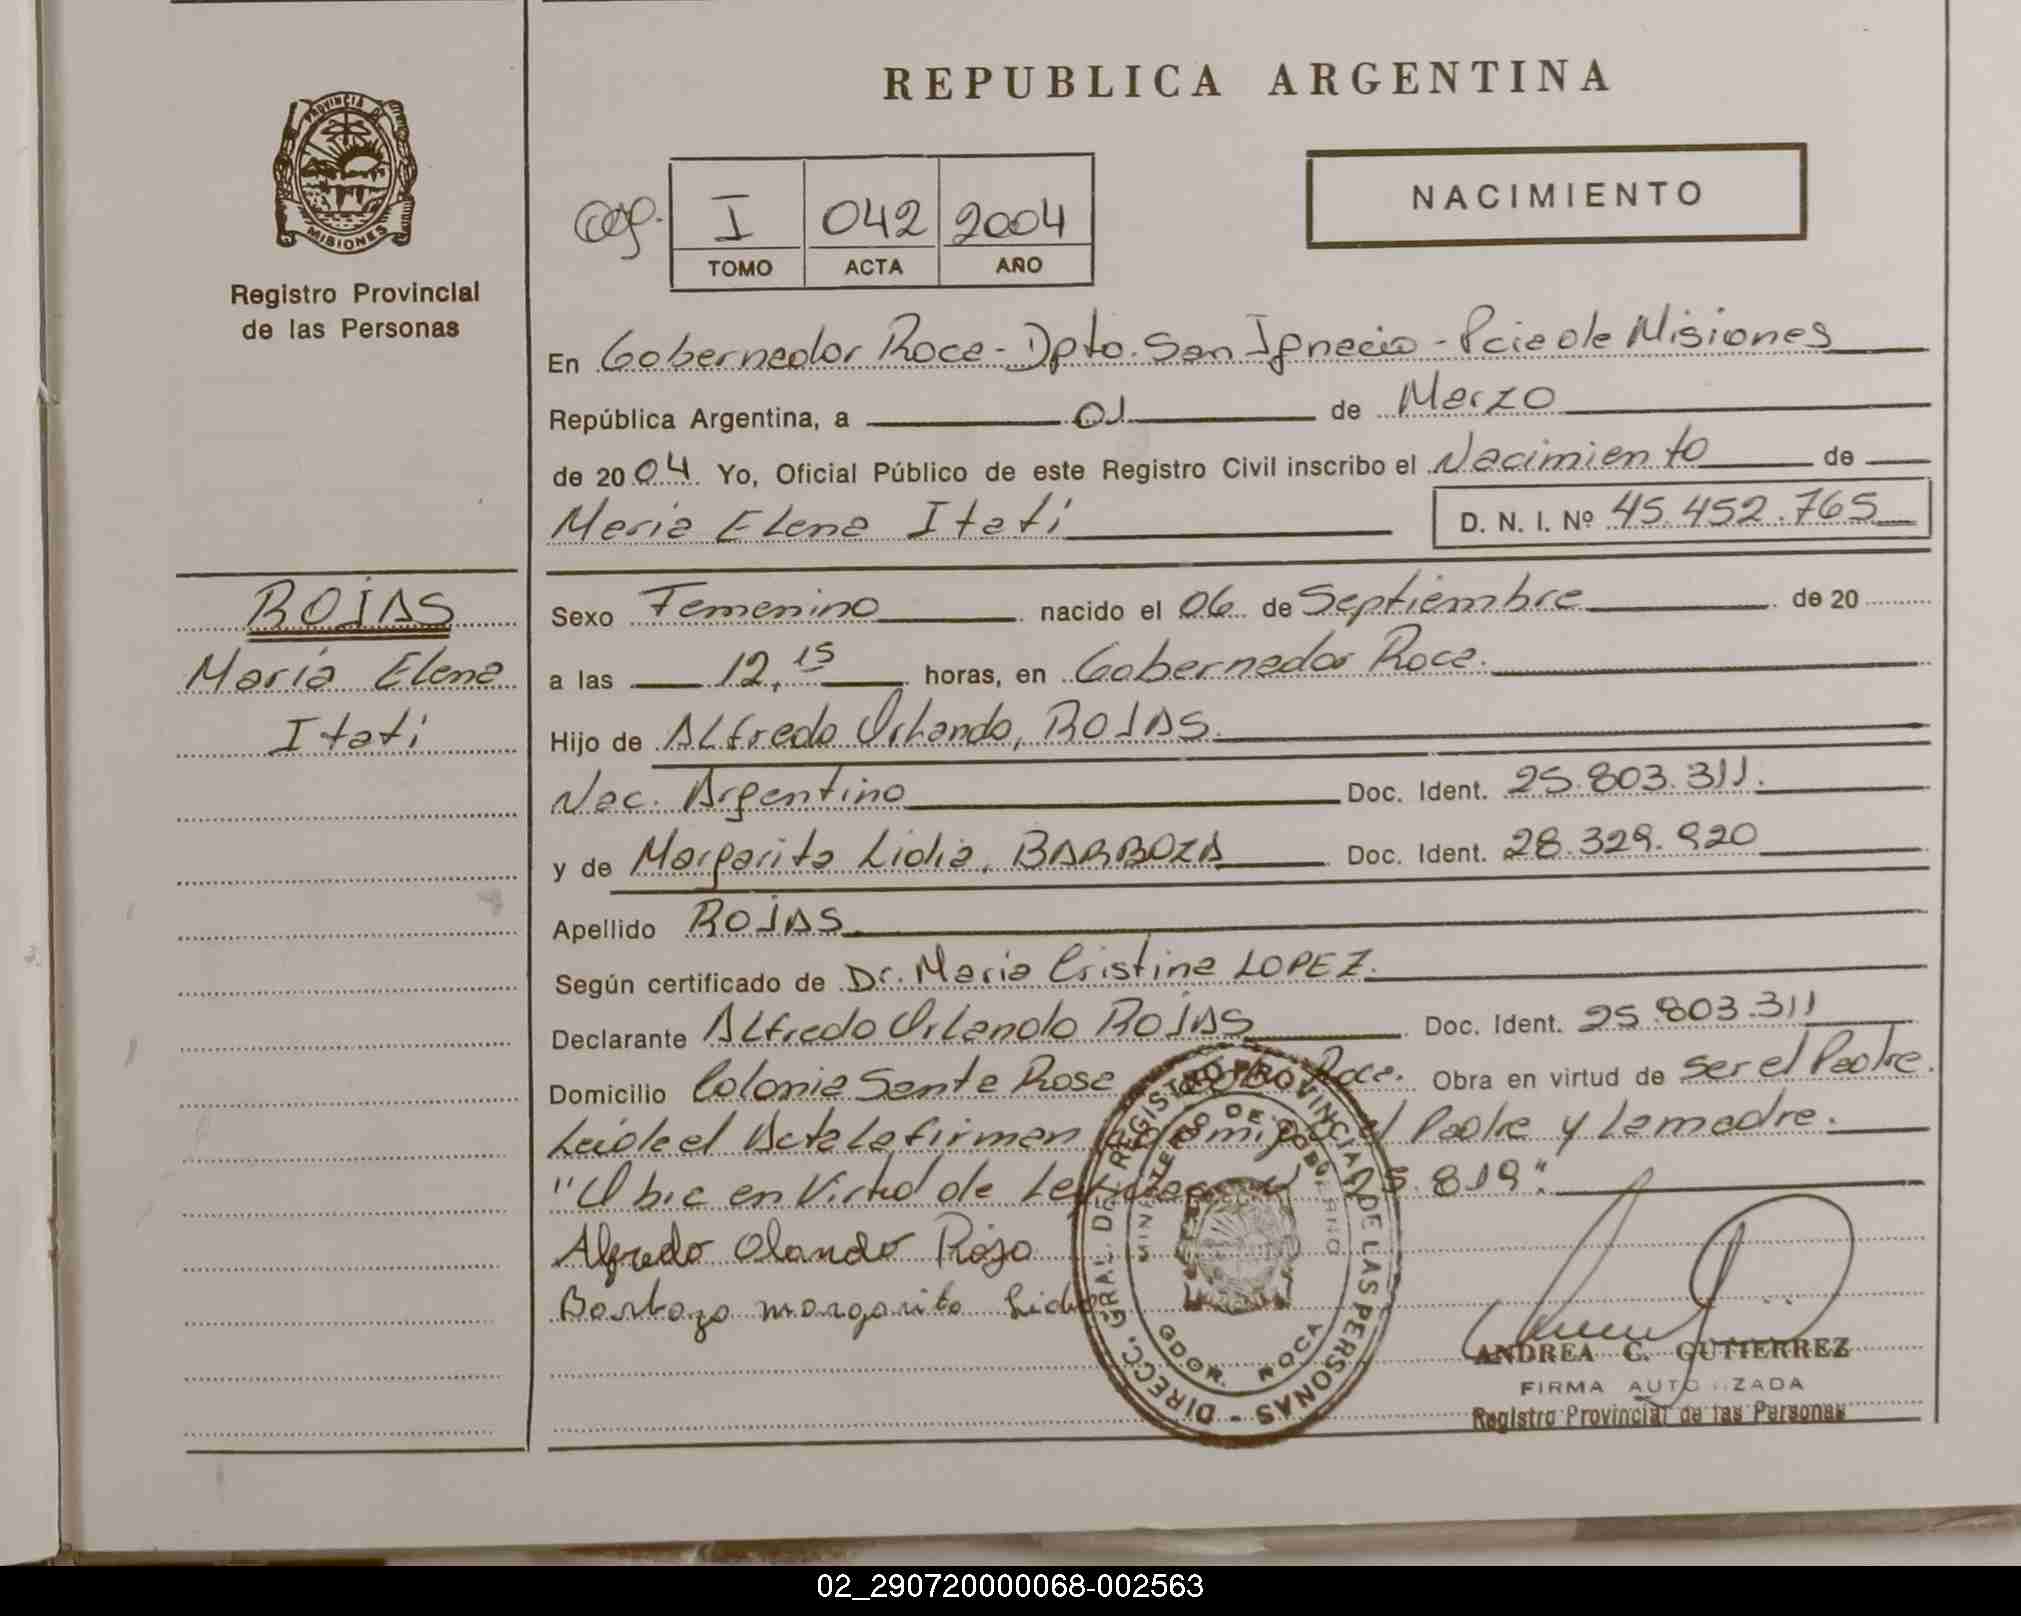 PROVINCIA DE
MISIONES
Registro Provincial
de las Personas
ROJAS
María Elena
Itatí
REPUBLICA ARGENTINA
I 042 2004
TOMO ACTA AÑO
NACIMIENTO
En Gobernador Roca - Dpto. San Ignacio - Pcia de Misiones
República Argentina, a 01 de Marzo
de 2004 Yo, Oficial Público de este Registro Civil inscribo el Nacimiento de
Maria Elena Itatí D. N. I. Nº 45.452.765
Sexo Femenino nacido el 06 de Septiembre de 20
a las 12,15 horas, en Gobernador Roca.
Hijo de Alfredo Orlando, ROJAS.
Nac. Argentino Doc. Ident. 25.803.311.
y de Margarita Lidia, BARBOZA Doc. Ident. 28.329.920
Apellido ROJAS
Según certificado de Dr. Maria Cristina LOPEZ.
Declarante Alfredo Orlando ROJAS Doc. Ident. 25.803.311
Domicilio Colonia Santa Rosa Roca. Obra en virtud de ser el Padre.
Leida el Acta la firman el Padre y la madre.
"Ubic en Virtud de 25.819".
Alfredo Olando Roja
Barboza margarita Lidia
DIRECC. GRAL. DEL REGISTRO PROVINCIAL DE LAS PERSONAS -
MINISTERIO DE GOBIERNO
GDOR. ROCA
ANDREA C. GUTIERREZ
FIRMA AUTORIZADA
Registro Provincial de las Personas
02_290720000068-002563